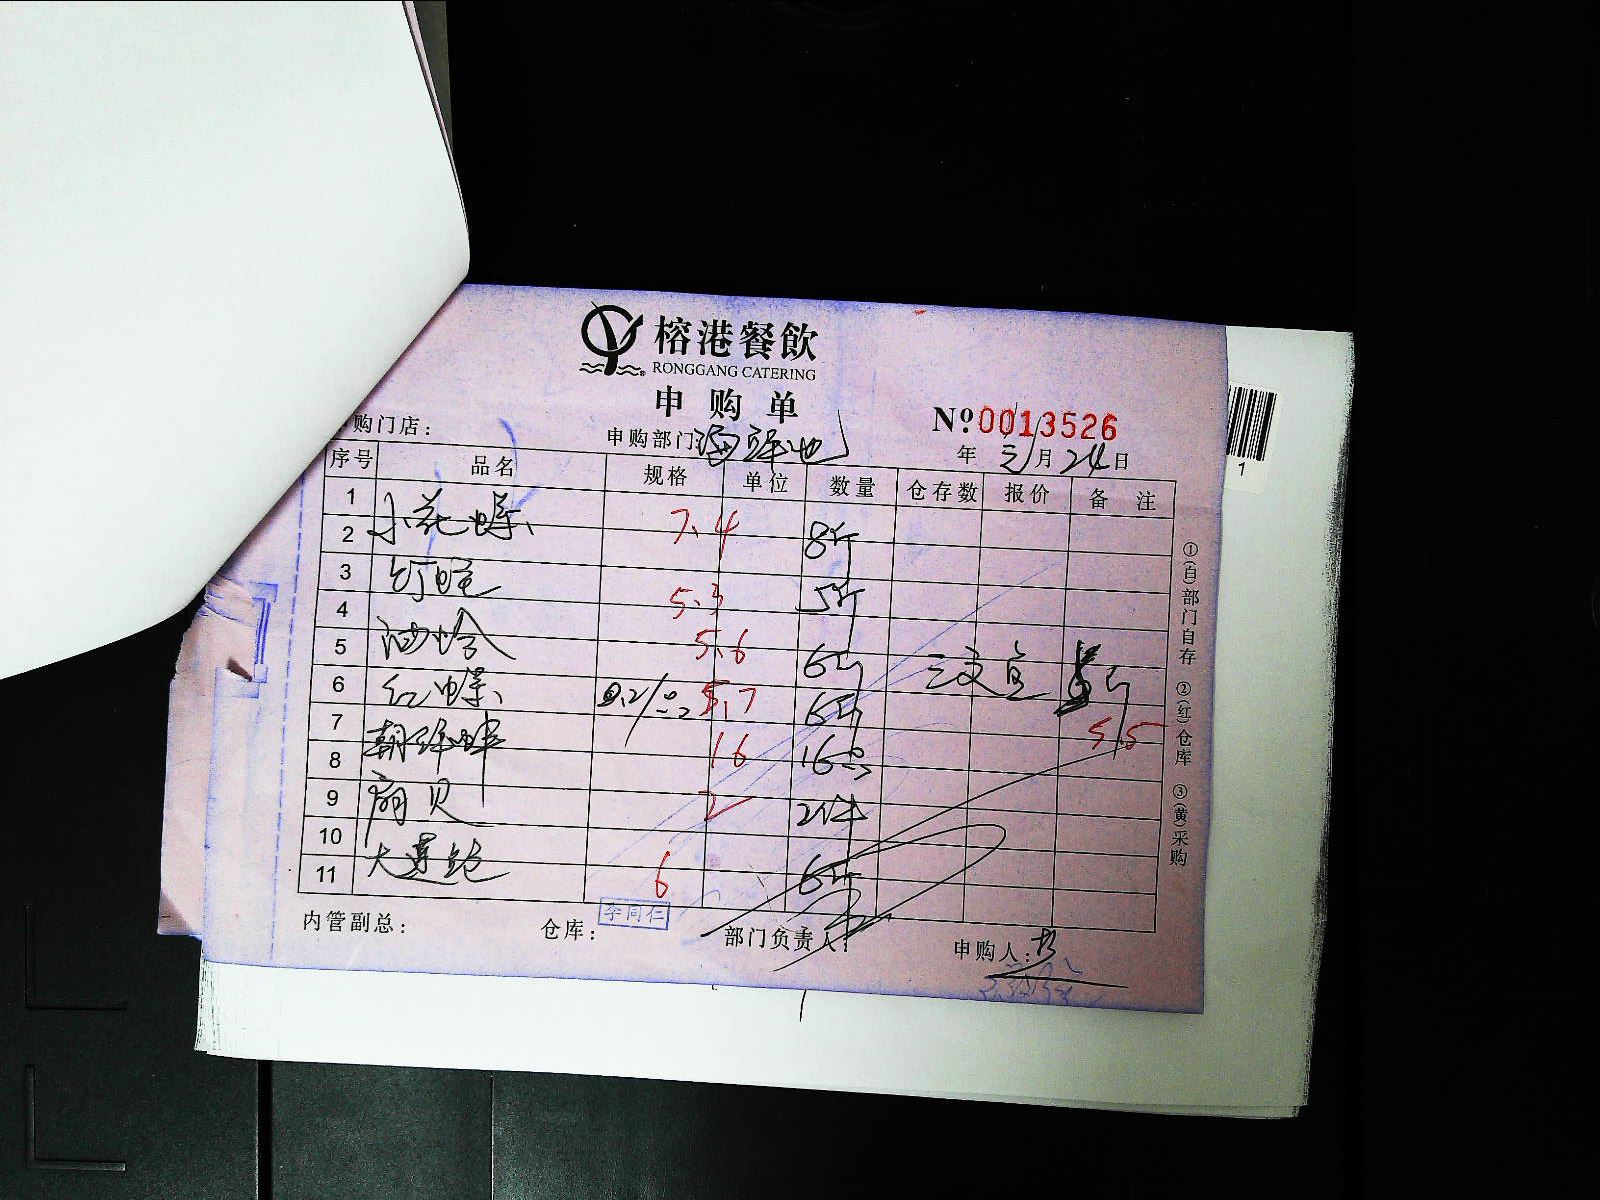 榕港餐飲
RONGGANG CATERING
申购单
购门店：
申购部门 海鲜池
№ 0013526
年 三月 24日
序号 品名 规格 单位 数量 仓存数 报价 备注
1
小花螺 7.4 8斤
2
3
钉螺 5.3 5斤
4
油蛤 5.6 6斤
5
三文鱼
6
红螺 5.7 6斤
5.5
7
16 16只
8
扇贝 2
9
10
大连鲍 6 6斤
11
内管副总：
仓库：
李同仁
部门负责人：
申购人：
①(白)部门自存 ②(红)仓库 ③(黄)采购
1